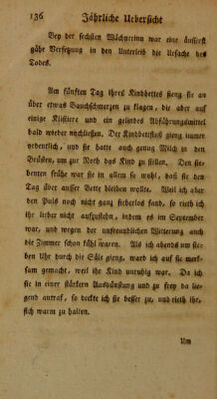 136 Jährliche Uebersicht
Bey der sechsten Wöchnerinn war eine äusserst
gähe Versetzung in den Unterleib die Ursache des
Todes.
Am fünften Tag ihres Kindbettes fieng sie an
über etwas Bauchschmerzen zu klagen, die aber auf
einige Klistiere und ein gelindes Abführungsmittel
bald wieder nachließen. Der Kindbettfluß gieng im-
mer fort, und sie hatte auch genug Milch in den
Brüsten, um zur Noth das Kind zu stillen. Den sie-
benten frühe war sie in allem so wohl, daß sie den
Tag über ausser Bette bleiben wollte. Weil ich aber
den Puls noch nicht ganz fieberlos fand, so rieth ich
ihr lieber nicht aufzustehn, indem es im September
war, und wegen der unfreundlichen Witterung auch
die Zimmer schon kühl waren. Als ich abends um sie-
ben Uhr durch die Säle gieng, ward ich auf sie merk-
sam gemacht, weil ihr Kind unruhig war. Da ich
sie in einer stärkern Ausdünstung und zu frey da lie-
gend antraf, so deckte ich sie besser zu, und rieth ihr,
sich warm zu halten.
Um